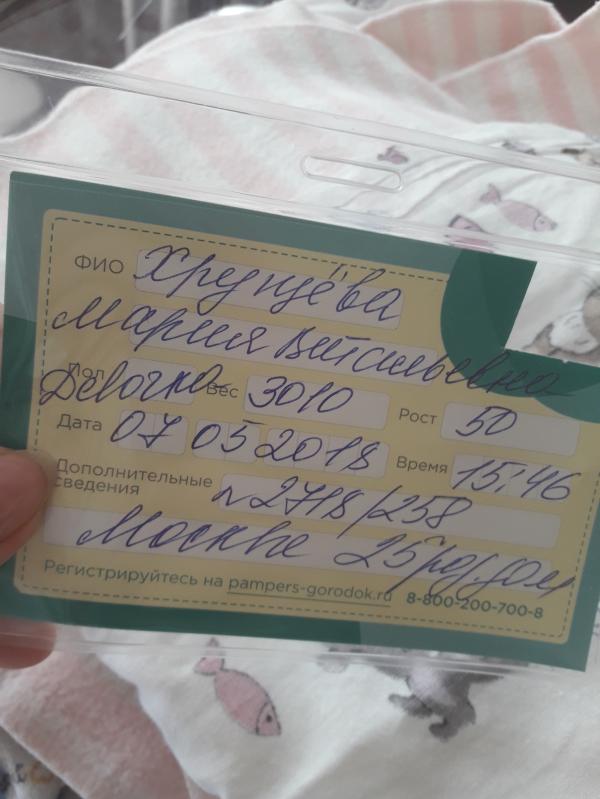 ФИО Хрущёва
Мария Витальевна
Пол Девочка Вес 3010 Рост 50
Дата 07 05 2018 Время 15:46
Дополнительные сведения
n 2718/258
Москве 25 род/дом
Регистрируйтесь на pampers-gorodok.ru 8-800-200-700-8